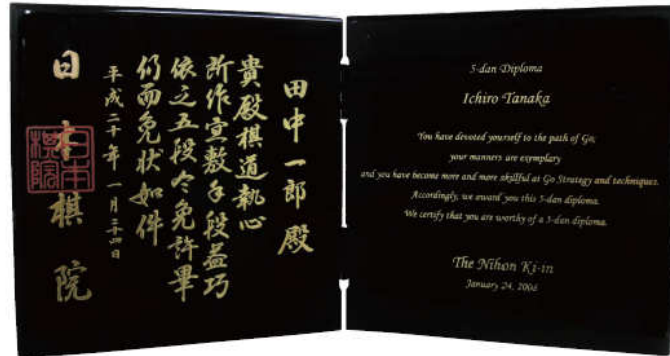 田中一郎殿
貴殿棋道執心
所作宣敷手段益巧
依之五段令免許畢
仍而免状如件
平成二十年一月二十四日
日本棋院
日本
棋院
5-dan Diploma
Ichiro Tanaka
You have devoted yourself to the path of Go;
your manners are exemplary
and you have become more and more skillful at Go Strategy and techniques.
Accordingly, we award you this 5-dan diploma.
We certify that you are worthy of a 5-dan diploma.
The Nihon Ki-in
January 24, 2008